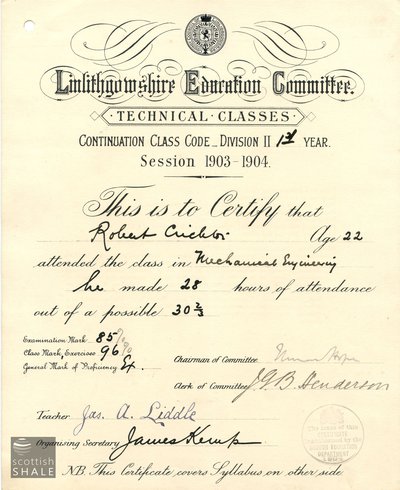 Linlithgowshire Education Committee.
TECHNICAL CLASSES
CONTINUATION CLASS CODE_DIVISION II 1st YEAR.
Session 1903-1904.
This is to Certify that
Robert Crichton Age 22
attended the class in Mechanical Engineering
he made 28 hours of attendance
out of a possible 30 2/3
Examination Mark 85
Class Mark, Exercises 96
General Mark of Proficiency Ex.
Chairman of Committee
Clerk of Committee J.G.B. Henderson
Teacher Jas. A. Liddle
Organising Secretary James Kemp
NB. This Certificate covers Syllabus on other side
scottish
SHALE